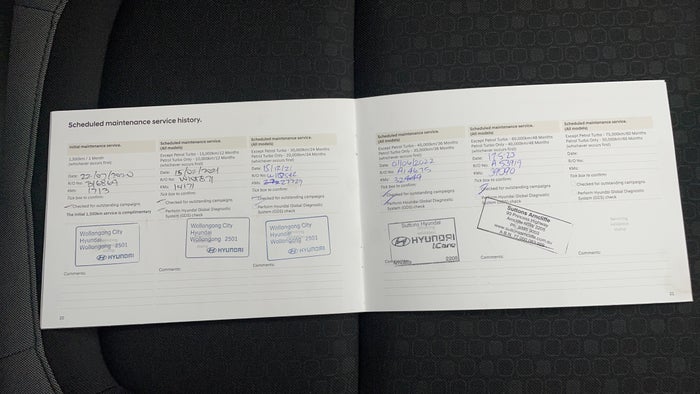 Scheduled maintenance service history.
Initial maintenance service.
1,500km / 1 Month
(whichever occurs first)
Date:
R/O No:
KMs: 1713
Tick box to confirm:
Checked for outstanding campaigns
The initial 1,500km service is complimentary
Wollongong City
Hyundai
Wollongong 2501
HYUNDAI
Comments:
Scheduled maintenance service.
(All models)
Except Petrol Turbo - 15,000km/12 Months
Petrol Turbo Only - 10,000km/12 Months
(whichever occurs first)
Date:
R/O No:
KMs:
Tick box to confirm:
Checked for outstanding campaigns
Perform Hyundai Global Diagnostic
System (GDS) check
Wollongong City
Hyundai
Wollongong 2501
HYUNDAI
Comments:
Scheduled maintenance service.
(All models)
Except Petrol Turbo - 30,000km/24 Months
Petrol Turbo Only - 20,000km/24 Months
(whichever occurs first)
Date: 15/12/21
R/O No:
KMs:
Tick box to confirm:
Checked for outstanding campaigns
Perform Hyundai Global Diagnostic
System (GDS) check
Wollongong City
Hyundai
Wollongong 2501
HYUNDAI
Comments:
22
Scheduled maintenance service.
(All models)
Except Petrol Turbo - 45,000km/36 Months
Petrol Turbo Only - 30,000km/36 Months
(whichever occurs first)
Date:
R/O No: A14675
KMs:
Tick box to confirm:
Checked for outstanding campaigns
Perform Hyundai Global Diagnostic
System (GDS) check
Suttons Hyundai
HYUNDAI
iCare
2205
Comments:
Scheduled maintenance service.
(All models)
Except Petrol Turbo - 60,000km/48 Months
Petrol Turbo Only - 40,000km/48 Months
(whichever occurs first)
Date:
R/O No:
KMs: 39070
Tick box to confirm:
Checked for outstanding campaigns
Perform Hyundai Global Diagnostic
System (GDS) check
Suttons Arncliffe
93 Princes Highway
Arncliffe NSW 2205
www.suttonsarncliffe.com.au
Comments:
Scheduled maintenance service.
(All models)
Except Petrol Turbo - 75,000km/60 Months
Petrol Turbo Only - 50,000km/60 Months
(whichever occurs first)
Date:
R/O No:
KMs:
Tick box to confirm:
Checked for outstanding campaigns
Perform Hyundai Global Diagnostic
System (GDS) check
Servicing
Comments:
23